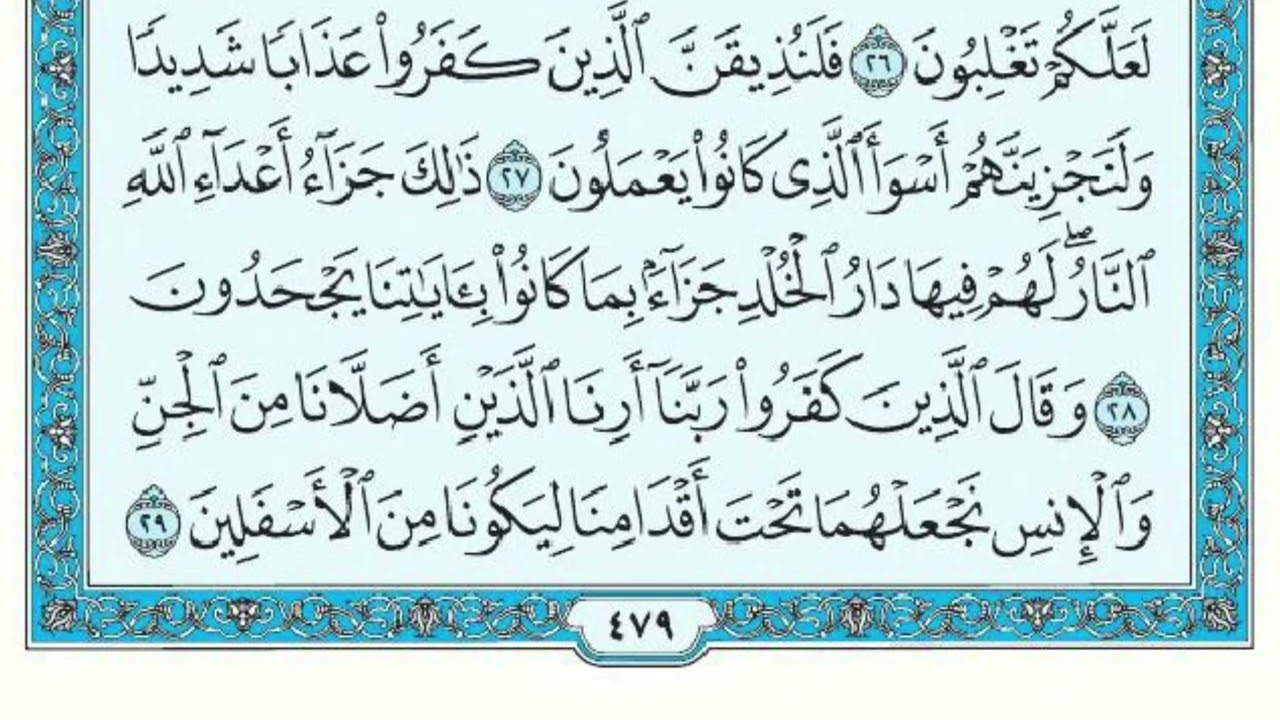 لَعَلَّكُمْ تَغْلِبُونَ ٢٦ فَلَنُذِيقَنَّ ٱلَّذِينَ كَفَرُوا۟ عَذَابًا شَدِيدًا
وَلَنَجْزِيَنَّهُمْ أَسْوَأَ ٱلَّذِى كَانُوا۟ يَعْمَلُونَ ٢٧ ذَٰلِكَ جَزَآءُ أَعْدَآءِ ٱللَّهِ
ٱلنَّارُ ۖ لَهُمْ فِيهَا دَارُ ٱلْخُلْدِ جَزَآءًۢ بِمَا كَانُوا۟ بِـَٔايَـٰتِنَا يَجْحَدُونَ
٢٨ وَقَالَ ٱلَّذِينَ كَفَرُوا۟ رَبَّنَآ أَرِنَا ٱلَّذَيْنِ أَضَلَّانَا مِنَ ٱلْجِنِّ
وَٱلْإِنسِ نَجْعَلْهُمَا تَحْتَ أَقْدَامِنَا لِيَكُونَا مِنَ ٱلْأَسْفَلِينَ ٢٩
٤٧٩